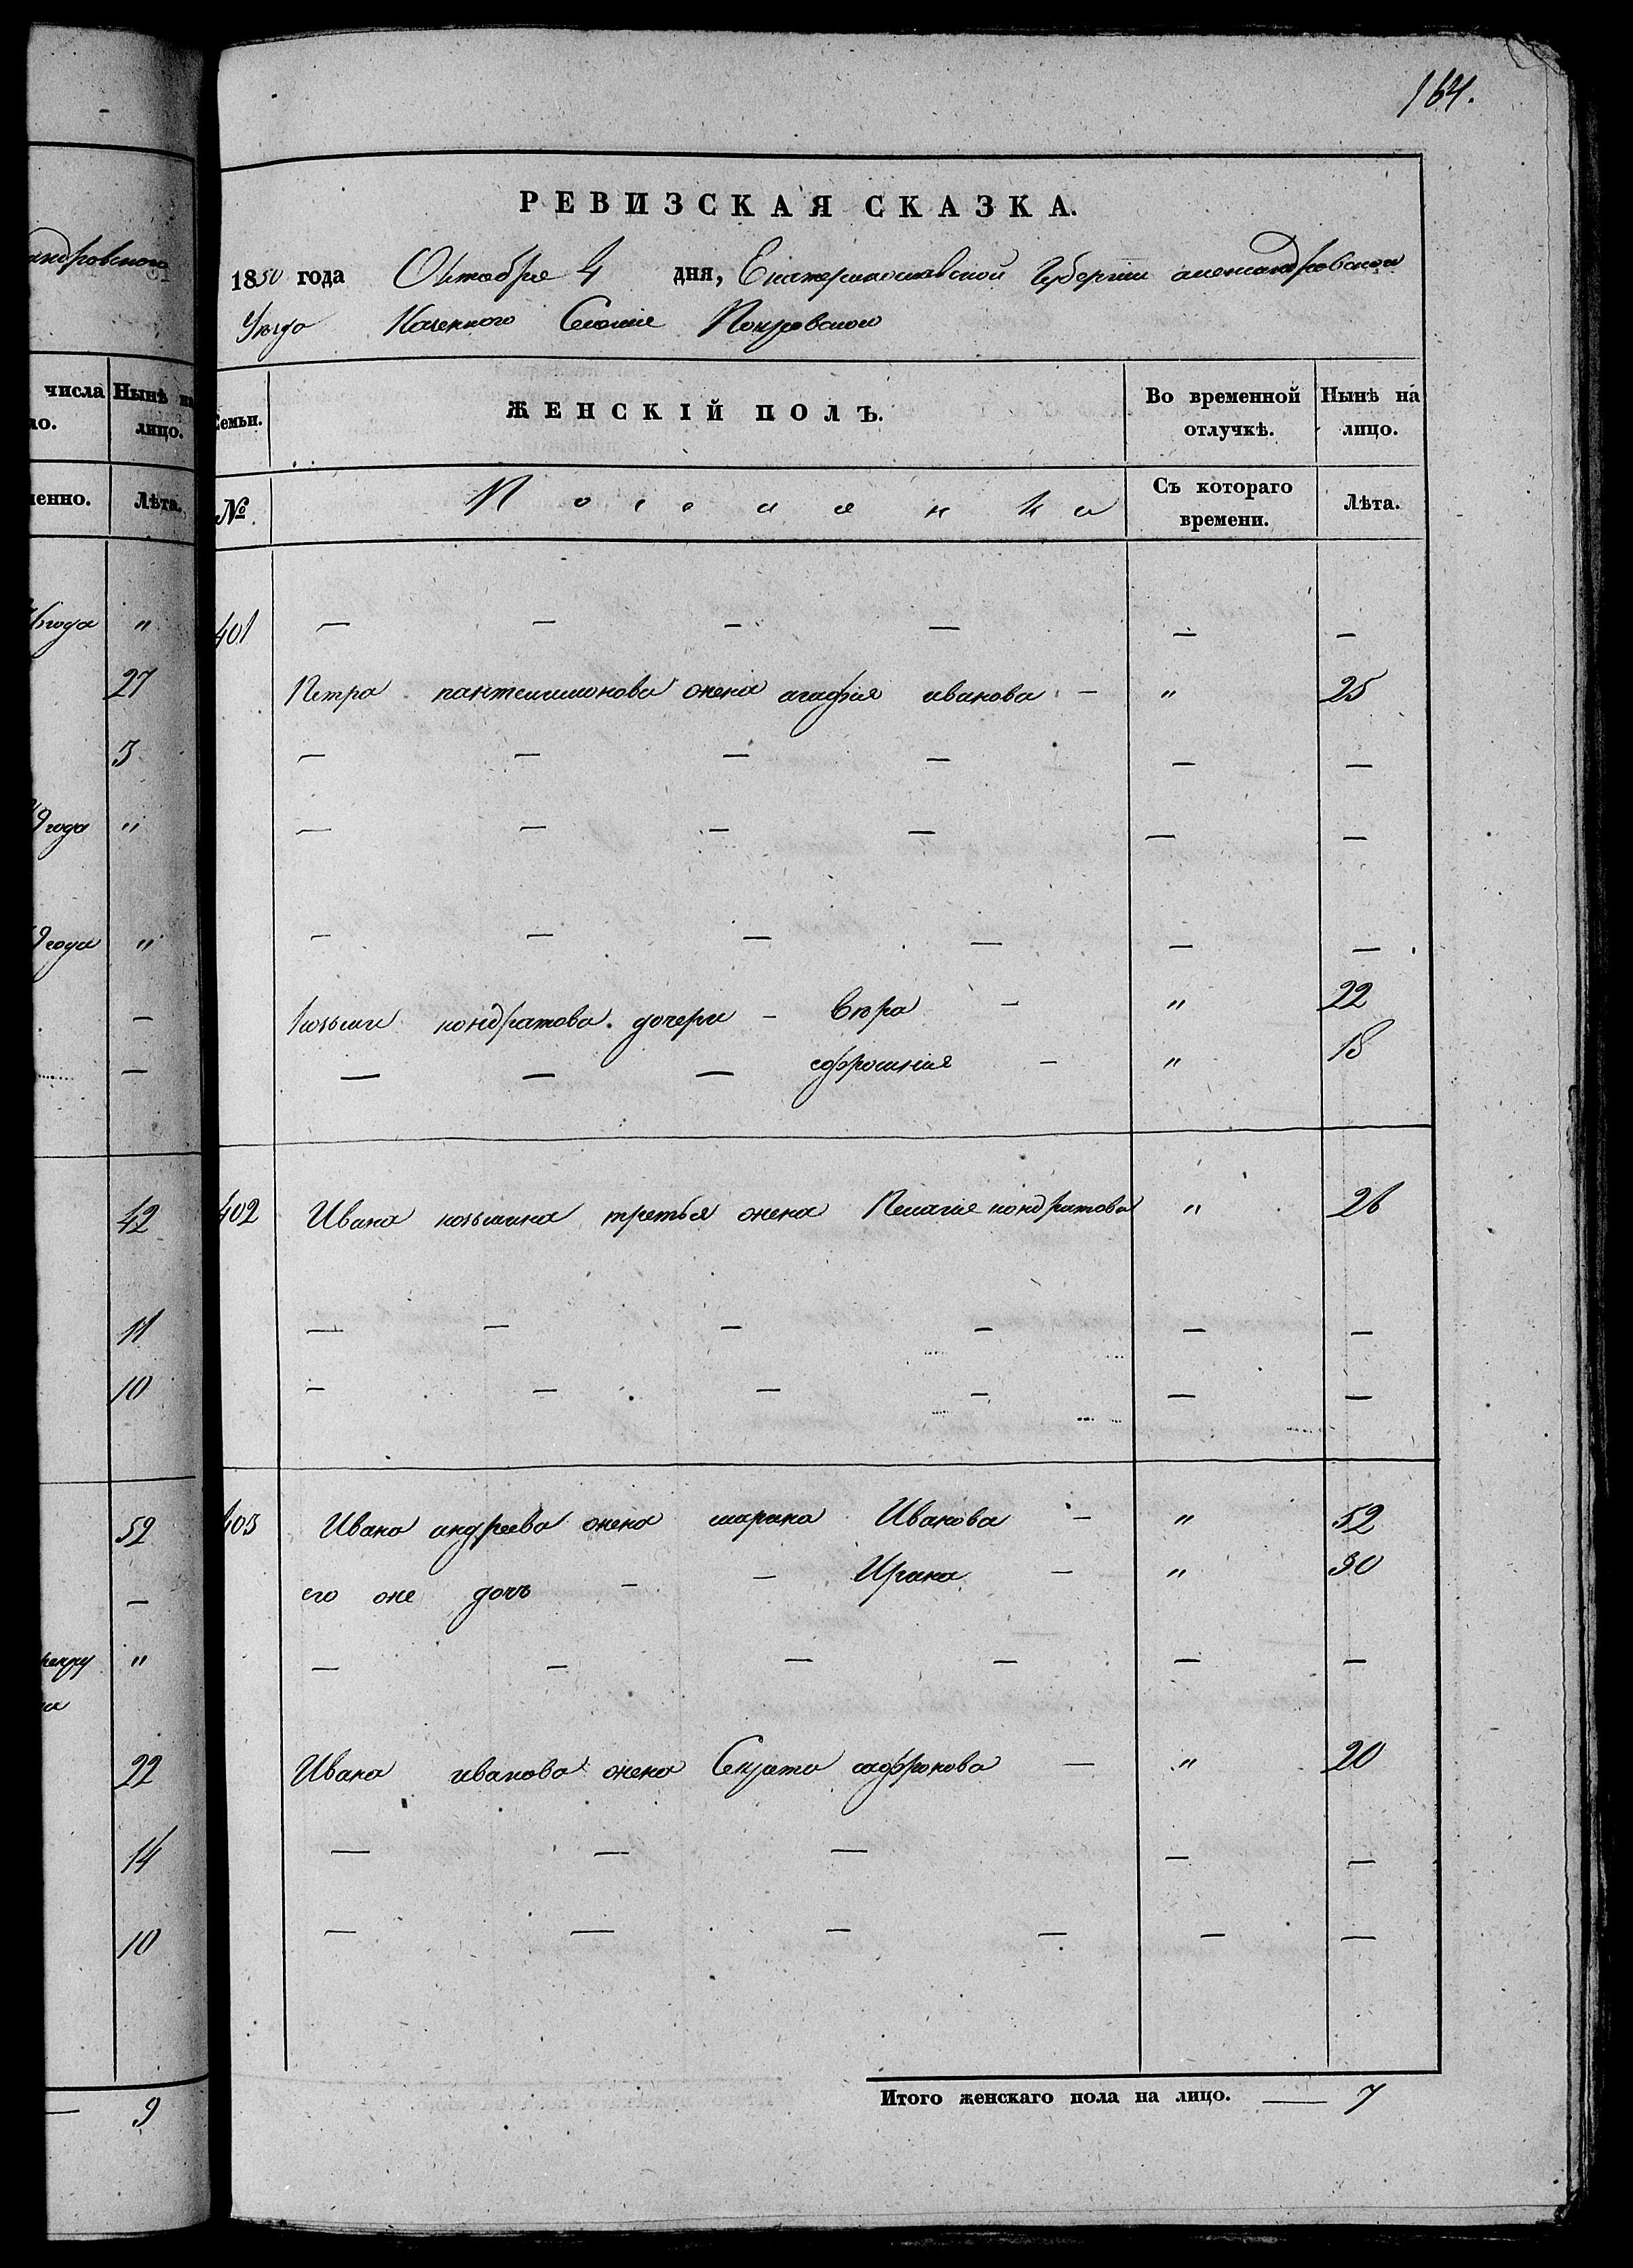 164.
андровского
РЕВИЗСКАЯ СКАЗКА.
1850 года Октября 4 дня, Екатеринославской Губернии александровского
Уезда Казенного Селения Покровского
числа Нынѣ на лицо.
Семьи. ЖЕНСКІЙ ПОЛЪ. Во временной отлучкѣ. Нынѣ на лицо.
Лѣта.
№ Поселянки Съ котораго времени. Лѣта.
года "
401 — — — — — —
27
Петра пантелимонова жена агафия иванова - " 25
3
— — — — — —
9 года "
— — — — — —
9 года "
— — — — — —
козьми кондратова дочери - Вѣра - " 22
— — — ефросиния - " 18
42
402 Ивана козьмина третья жена Пелагия кондратова " 26
11
— — — — — —
10
— — — — — —
52
403 Ивана андреева жена марина Иванова - " 52
его же дочь - - Ирина - " 30
рекру "
— — — — — —
22
Ивана иванова жена сафронова — " 20
14
— — — — —
10
— — — — — —
Итого женскаго пола на лицо. — 7
— 9